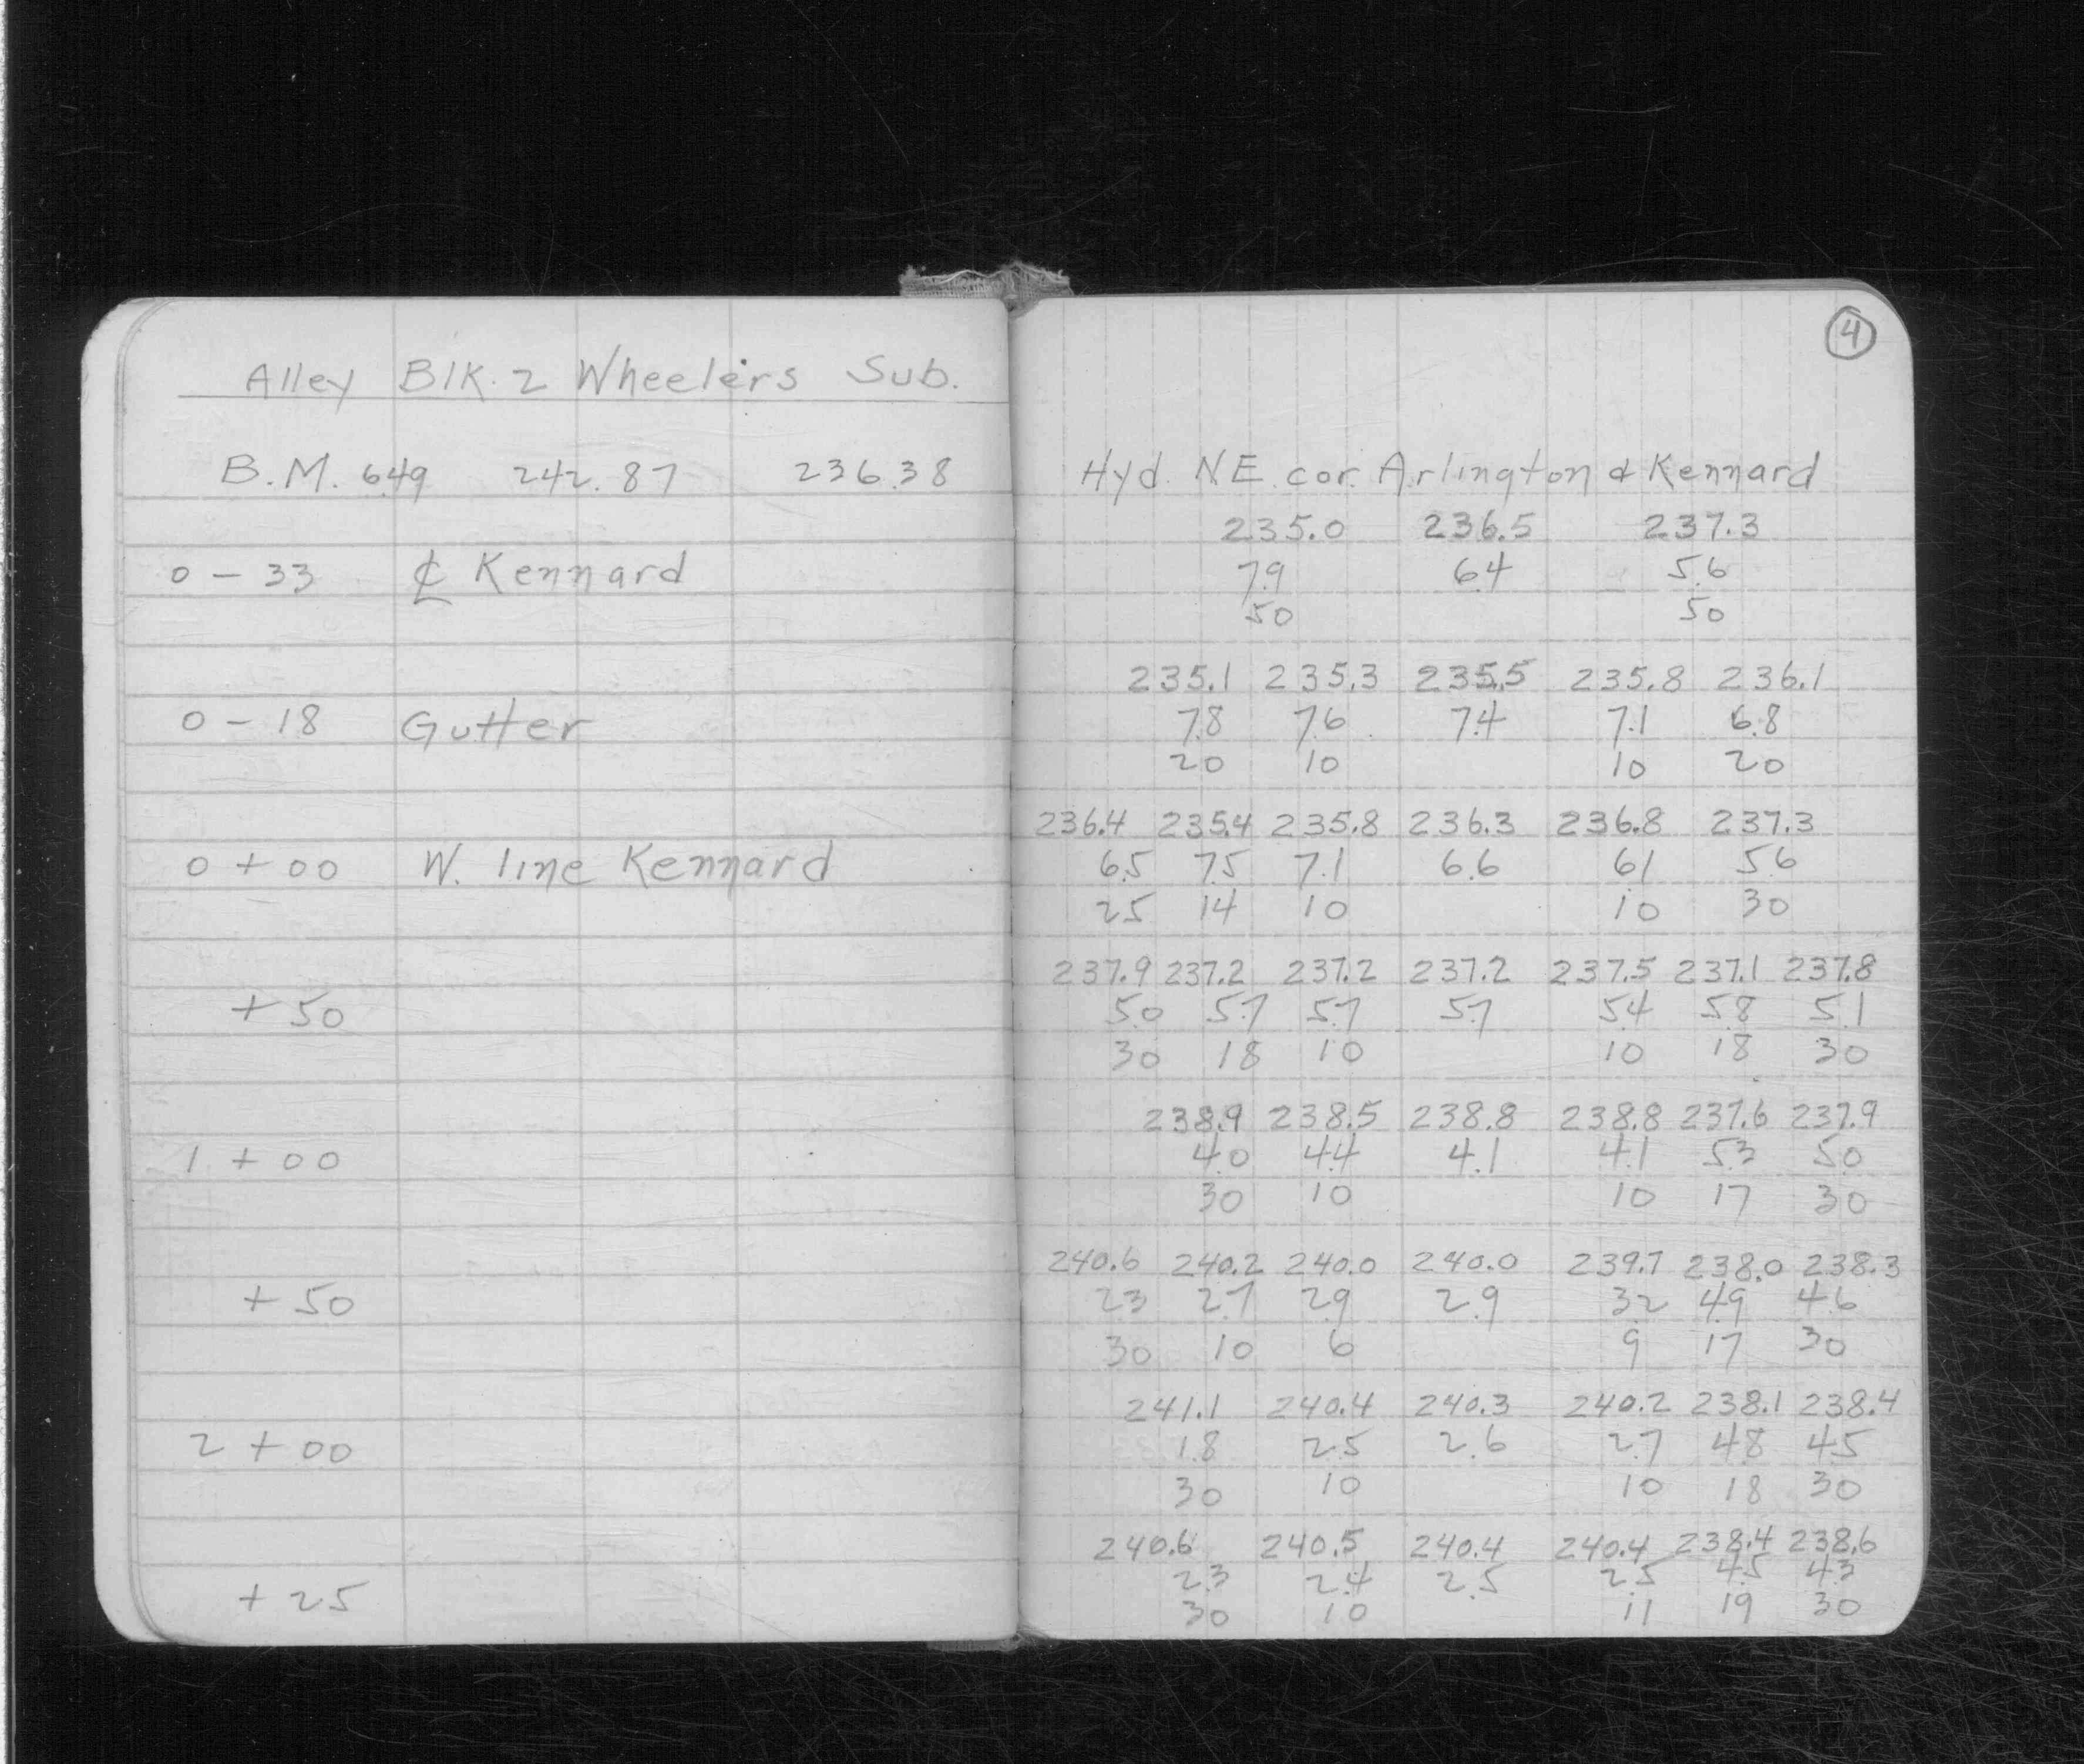 4
Alley Blk. 2 Wheelers Sub.
B.M. 6.49 242.87 236.38 Hyd. NE. cor. Arlington & Kennard
235.0 236.5 237.3
0 - 33 ℄ Kennard 7.9 6.4 5.6
50 50
235.1 235.3 235.5 235.8 236.1
0 - 18 Gutter 7.8 7.6 7.4 7.1 6.8
20 10 10 20
236.4 235.4 235.8 236.3 236.8 237.3
0 + 00 W. line Kennard 6.5 7.5 7.1 6.6 6.1 5.6
25 14 10 10 30
237.9 237.2 237.2 237.2 237.5 237.1 237.8
+ 50 5.0 5.7 5.7 5.7 5.4 5.8 5.1
30 18 10 10 18 30
238.9 238.5 238.8 238.8 237.6 237.9
1 + 00 4.0 4.4 4.1 4.1 5.3 5.0
30 10 10 17 30
240.6 240.2 240.0 240.0 239.7 238.0 238.3
+ 50 2.3 2.7 2.9 2.9 3.2 4.9 4.6
30 10 6 9 17 30
241.1 240.4 240.3 240.2 238.1 238.4
2 + 00 1.8 2.5 2.6 2.7 4.8 4.5
30 10 10 18 30
240.6 240.5 240.4 240.4 238.4 238.6
+ 25 2.3 2.4 2.5 2.5 4.5 4.3
30 10 11 19 30